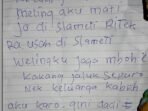 meling aku mati
jo di slameti Ritek
Ra usah di slameti
welingku jogo mboh?
Kakang jaluk sepuro
Nek keluarga kabeh
aku karo. gini dadi =